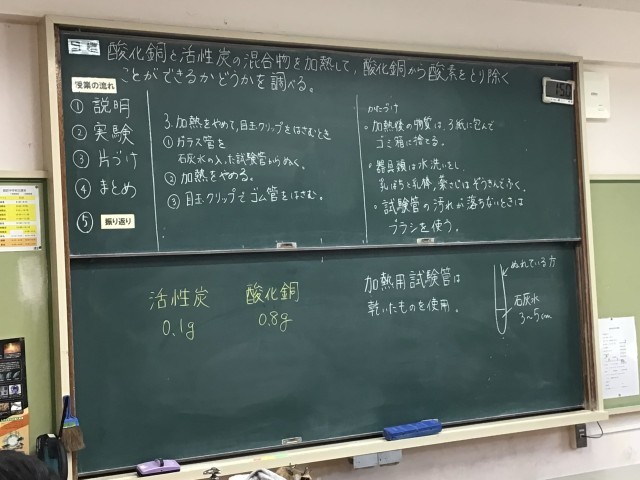 酸化銅と活性炭の混合物を加熱して、酸化銅から酸素をとり除く
ことができるかどうかを調べる。
授業の流れ
① 説明
② 実験
③ 片づけ
④ まとめ
⑤ 振り返り
3.加熱をやめて、目玉クリップをはさむとき
① ガラス管を
石灰水の入った試験管からぬく。
② 加熱をやめる。
③ 目玉クリップでゴム管をはさむ。
かたづけ
・加熱後の物質は、ろ紙に包んで
ゴミ箱に捨てる。
・器具類は水洗いをし、
乳ばちと乳棒、薬さじはぞうきんでふく。
・試験管の汚れが落ちないときは
ブラシを使う。
活性炭
0.1g
酸化銅
0.8g
加熱用試験管は
乾いたものを使用。
ぬれている方
石灰水
3~5cm